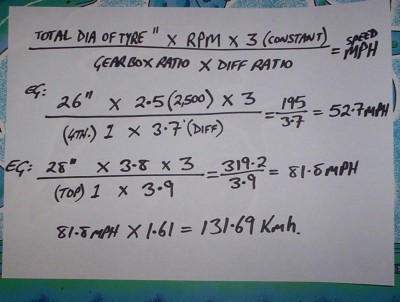 TOTAL DIA OF TYRE" X RPM X 3 (CONSTANT)
GEARBOX RATIO X DIFF RATIO
= SPEED MPH
EG: 26" X 2.5 (2,500) X 3
(4TH.) 1 X 3.7 (DIFF)
= 195
3.7
= 52.7 MPH
EG: 28" X 3.8 X 3
(TOP) 1 X 3.9
= 319.2
3.9
= 81.8 MPH
81.8 MPH X 1.61 = 131.69 Kmh.